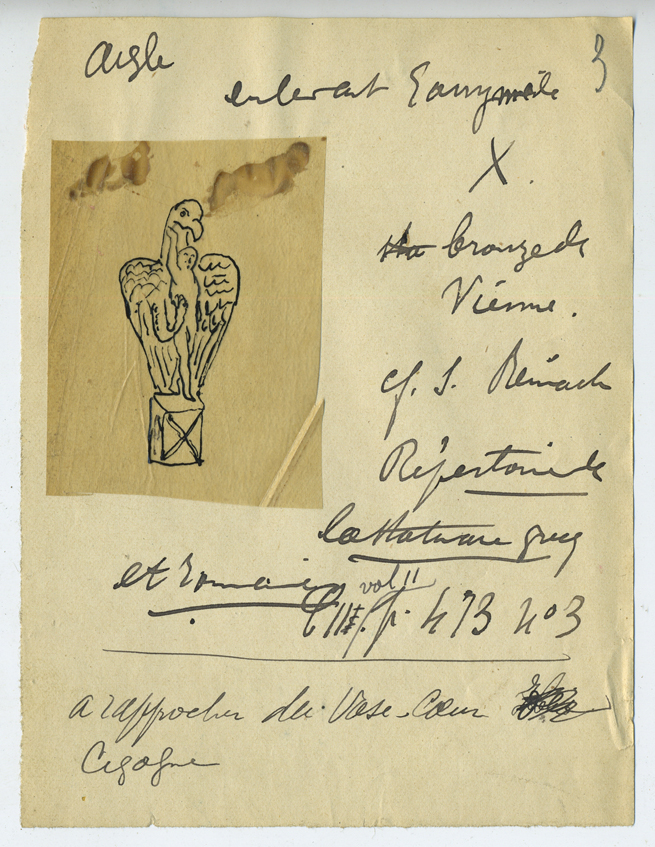 Aigle
3
enlevant Ganymède
X.
bronze de
Vienne.
cf. S. Reinach
Répertoire de
la statuaire grecq
et romaine vol II
p. 473 n° 3
a rapprocher du Vase-Cœur
Cigogne